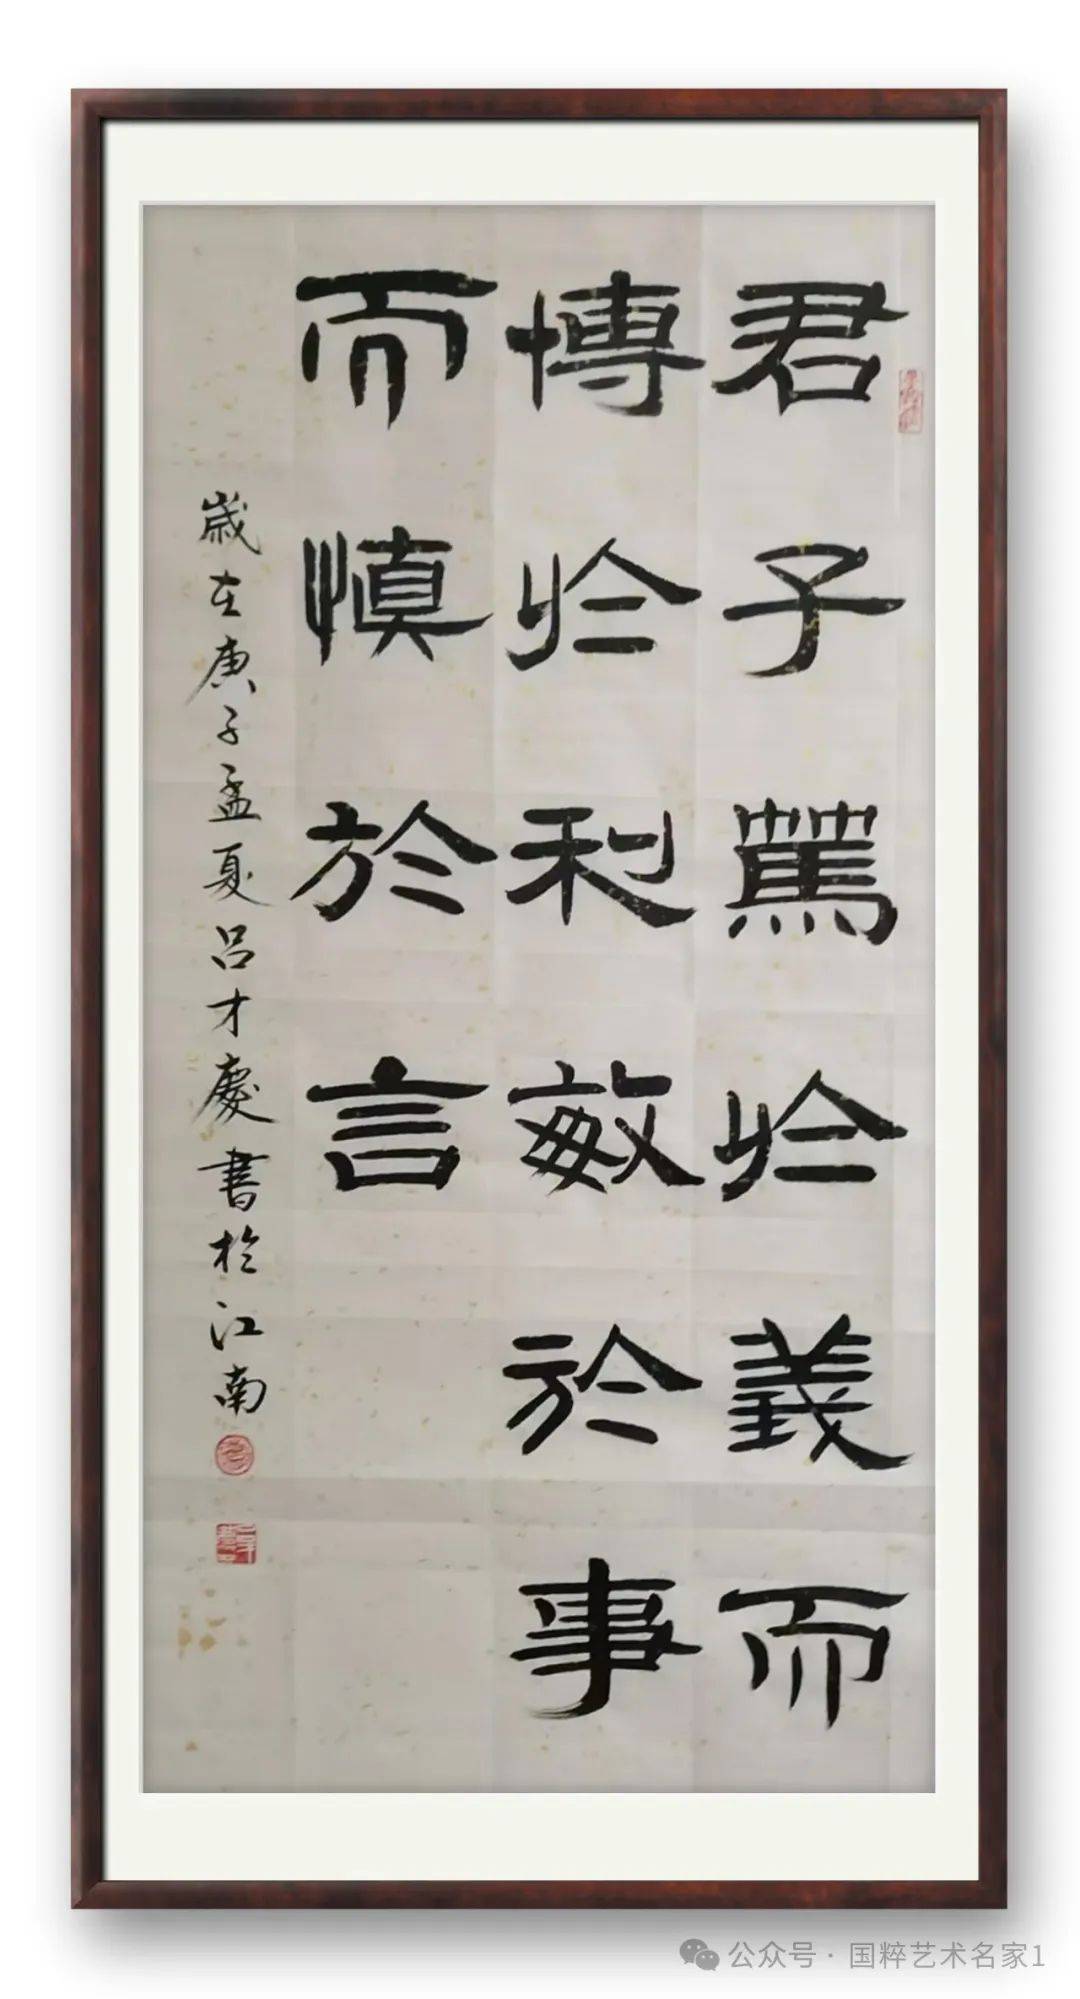 君子篤於義而
博於利敏於事
而慎於言
歲在庚子孟夏呂才慶書於江南
公众号 · 国粹艺术名家1